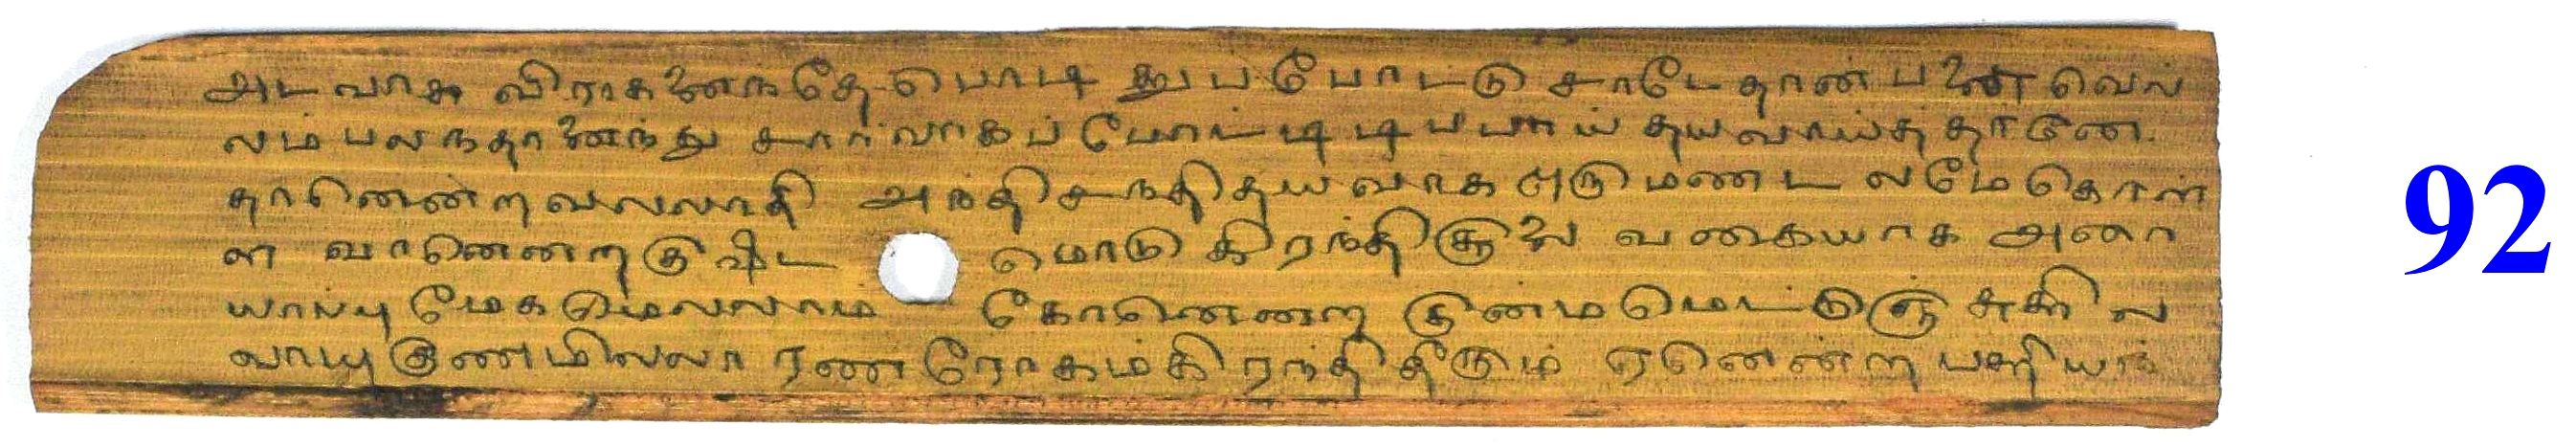 அடவாக விராகனைந்தே பொடி துப்போட்டு சாடேதான் பனை வெல்
லம் பலந்தானைந்து சார்வாகப் போட்டிடிப்பாய் தயவாய்த்தானே
தானென்ற வல்லாதி அந்திசந்திதயவாக அருமண்டலமேகொள்
ள வானென்ற குஷ்ட மொடு கிரந்திசூலை வகையாக அனா
யாப்பு மேகமெல்லாம் கோனென்ற குன்மமெட்டுஞ் சுகில
வாயு குணமில்லா ரணரோகம்கிரந்திதீரும் ஏனென்ற பனியா
92